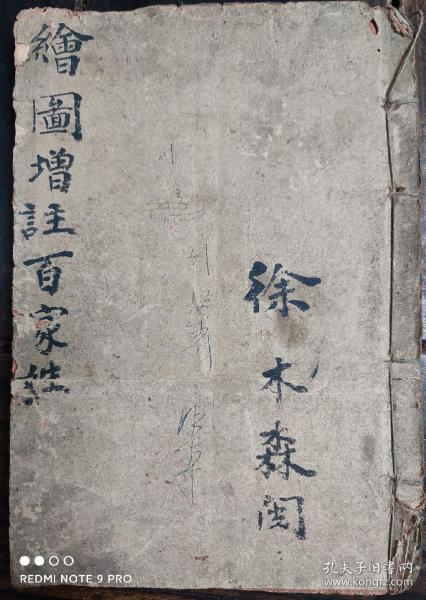 繪圖增註百家姓
徐木森閱
REDMI NOTE 9 PRO
孔夫子旧书网
www.kongfz.com